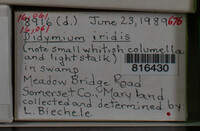 16,861
8916 (d.) June 23, 1989 676
16,061
Didymium iridis
(note small whitish columella
and light stalk)
in swamp
816430
Meadow Bridge Road
Somerset Co., Maryland
collected and determined by
L. Biechele.